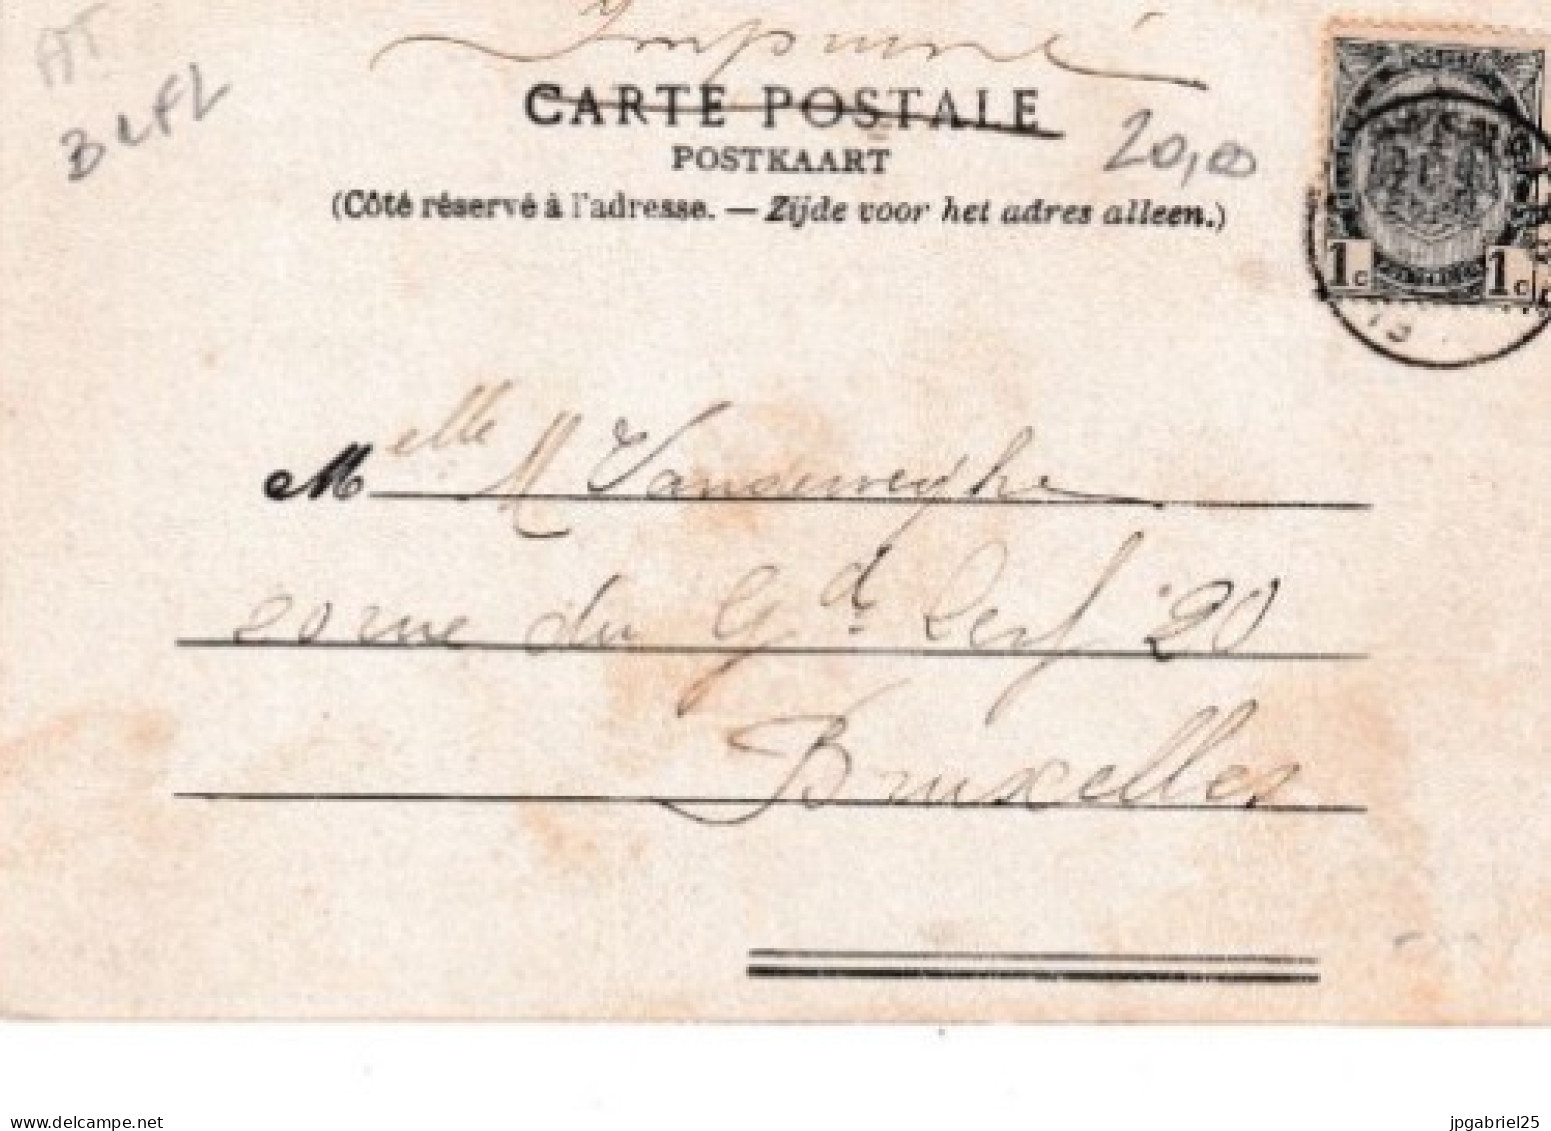 Imprimé
CARTE POSTALE
POSTKAART
20,00
(Côté réservé à l'adresse. — Zijde voor het adres alleen.)
1c 1c
Melle M Vanderweghe
20 rue du Gd Cerf 20
Bruxelles
Delcampe.net
jpgabriel25